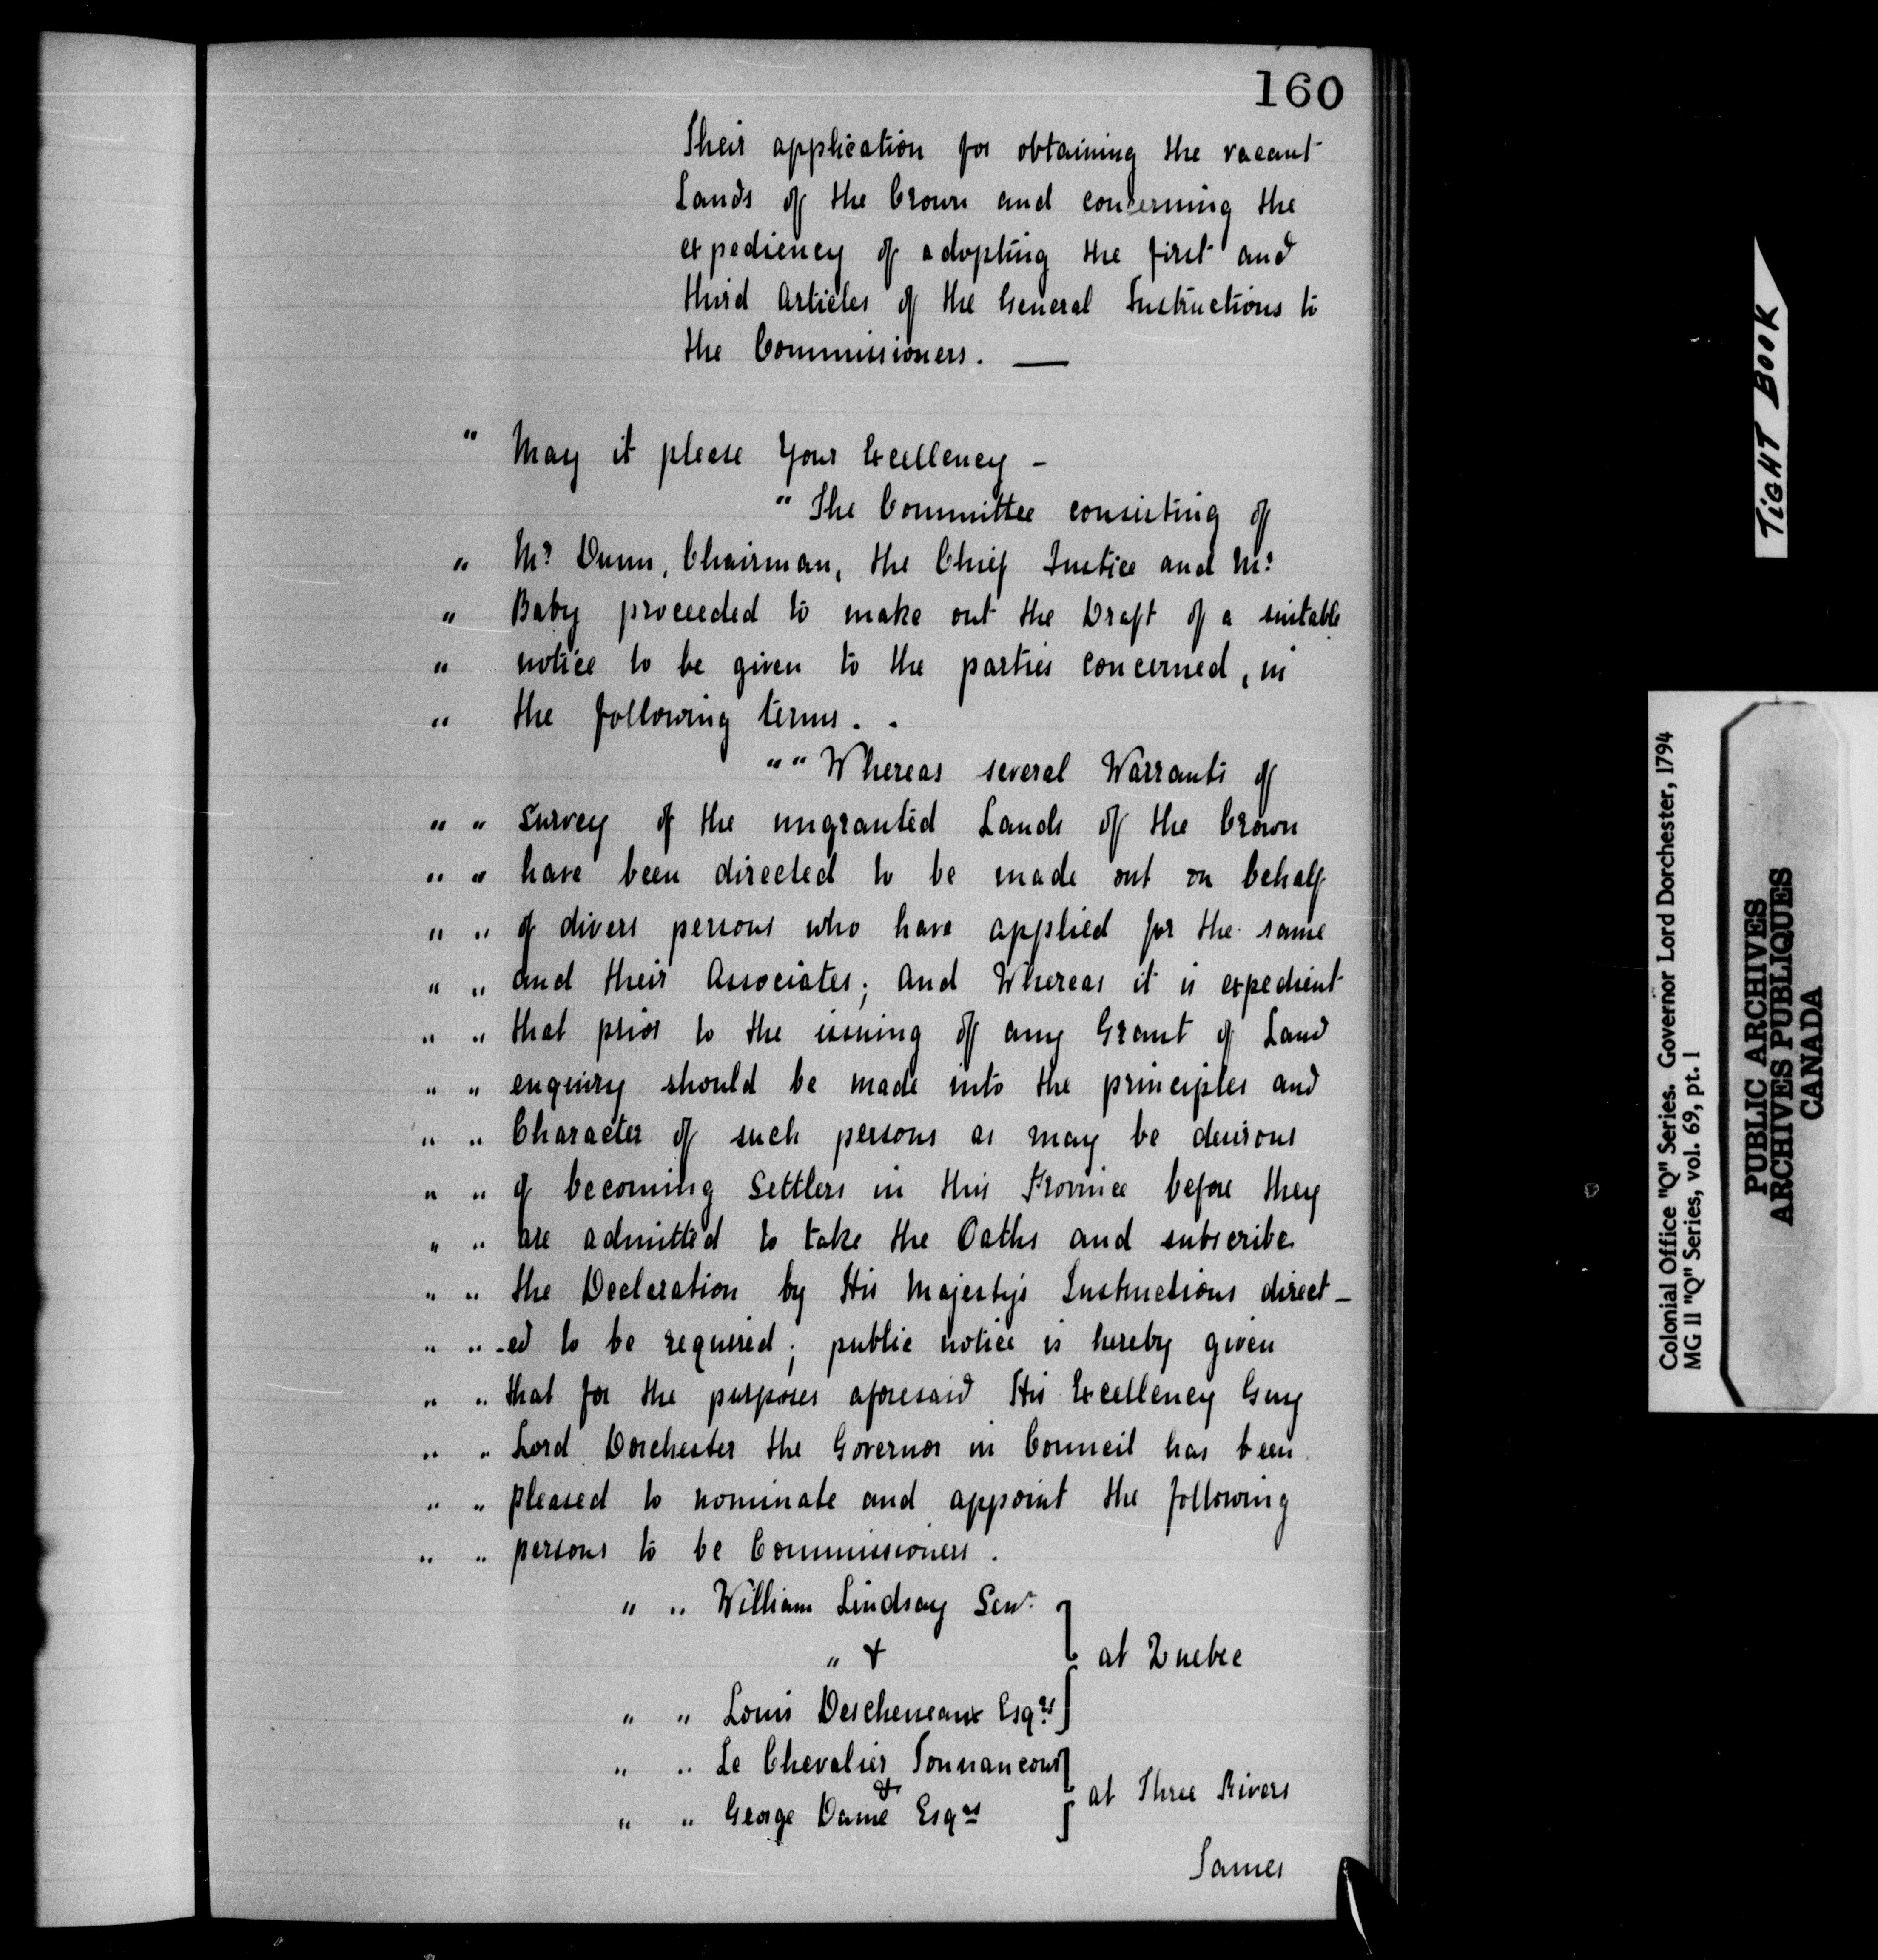 160
Their application for obtaining the vacant
Lands of the Crown and concerning the
expediency of adopting the first and
third Articles of the General Instructions to
the Commissioners. —
" May it please Your Excellency -
" The Committee consisting of
" Mr. Dunn, Chairman, the Chief Justice and Mr.
" Baby proceeded to make out the Draft of a suitable
" notice to be given to the parties concerned, in
" the following terms. .
" " Whereas several Warrants of
" " Survey of the ungranted Lands of the Crown
" " have been directed to be made out on behalf
" " of divers persons who have applied for the same
" " and their Associates; And Whereas it is expedient
" " that prior to the issuing of any Grant of Land
" " enquiry should be made into the principles and
" " Character of such persons as may be desirous
" " of becoming Settlers in this Province before they
" " are admitted to take the Oaths and subscribe
" " the Declaration by His Majesty's Instructions direct-
" " -ed to be required; public notice is hereby given
" " that for the purposes aforesaid His Excellency Guy
" " Lord Dorchester the Governor in Council has been
" " pleased to nominate and appoint the following
" " persons to be Commissioners.
" " William Lindsay Senr.
" & at Quebec
" " Louis Descheneaux Esqrs
" " Le Chevalier Tonnancour
& at Three Rivers
" " George Dame Esqrs
James
TIGHT BOOK
Colonial Office "Q" Series. Governor Lord Dorchester, 1794
MG 11 "Q" Series, vol. 69, pt. 1
PUBLIC ARCHIVES
ARCHIVES PUBLIQUES
CANADA